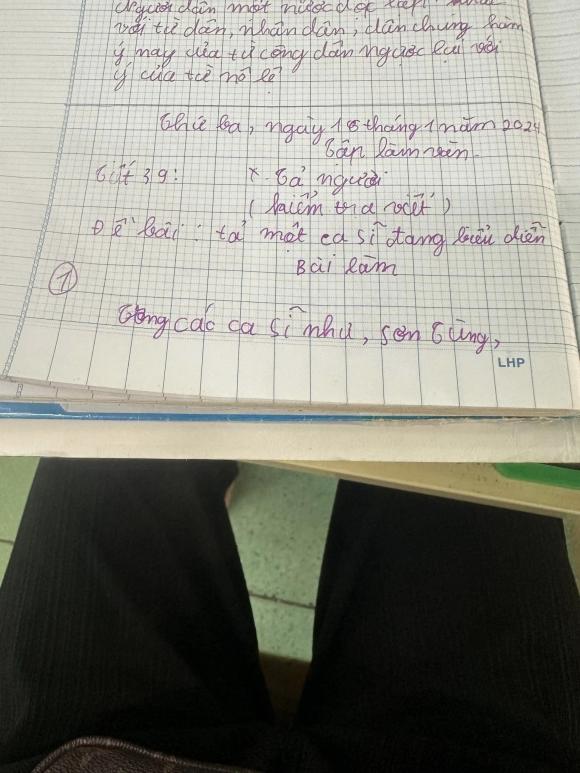 Người dân một nước độc lập
với từ dân, nhân dân, dân chúng hàm
ý này của từ công dân ngược lại với
ý của từ nô lệ
Thứ ba, ngày 18 tháng 1 năm 2024
Tập làm văn
Tiết 39: Tả người
(kiểm tra viết)
Đề bài: tả một ca sĩ đang biểu diễn
Bài làm
1
Trong các ca sĩ như, Sơn Tùng,
LHP